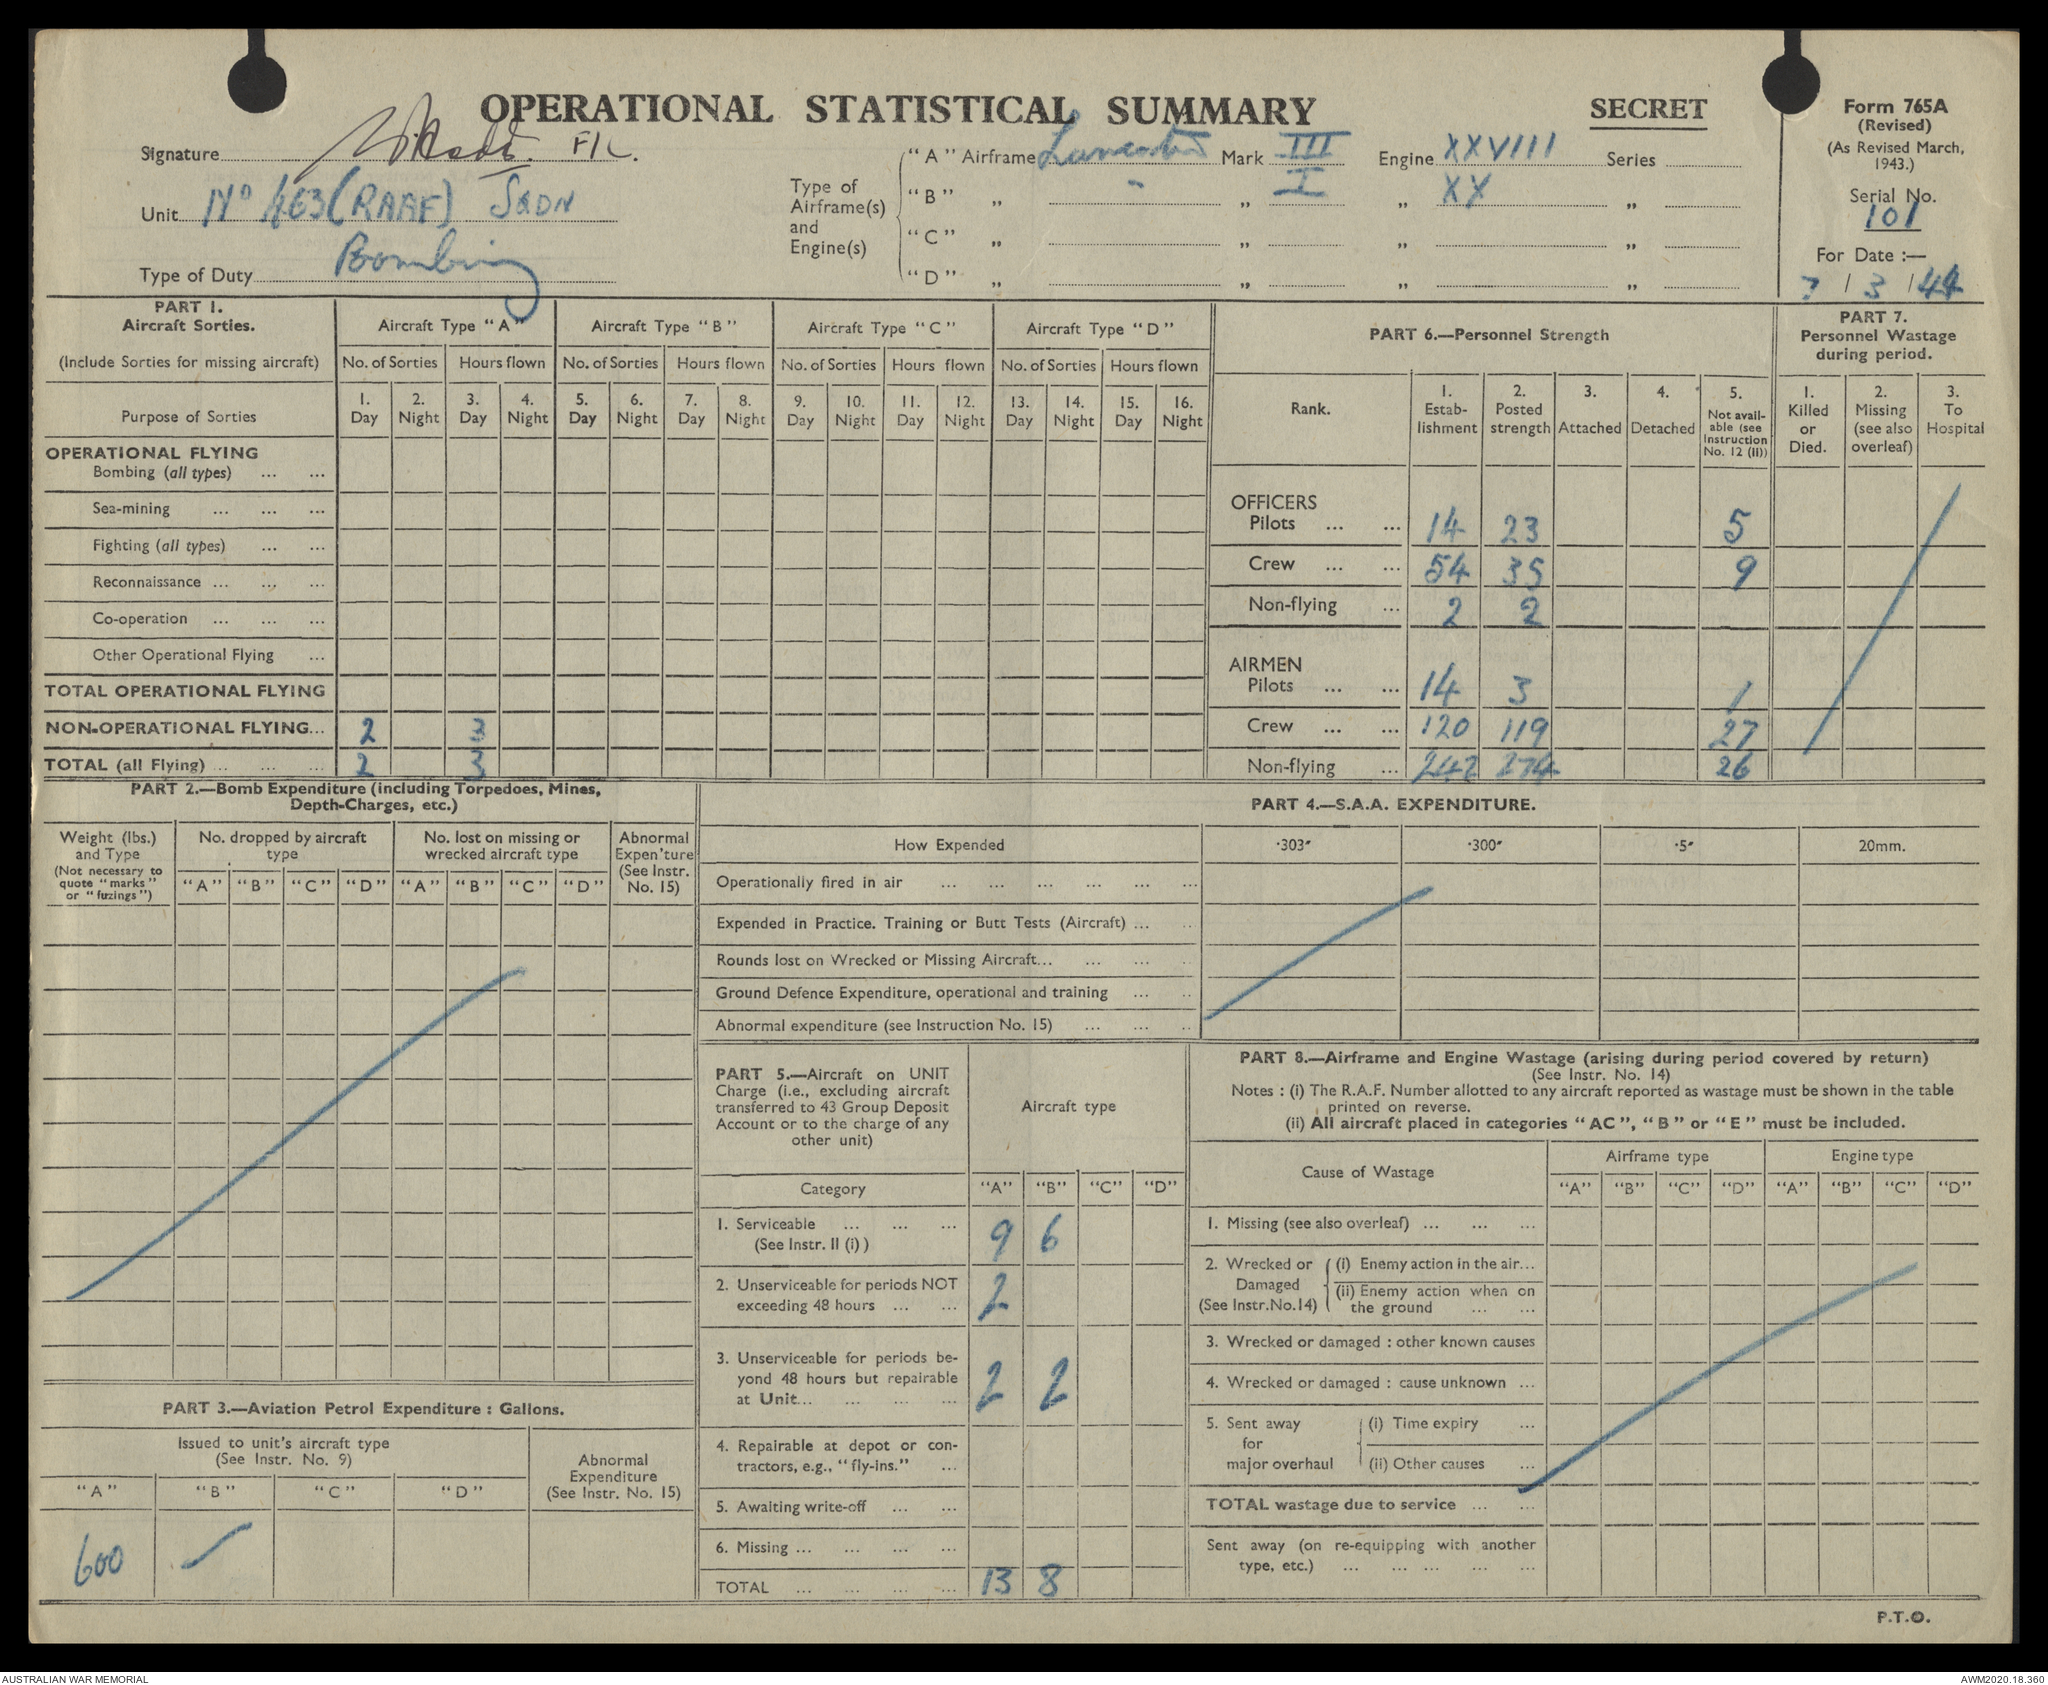 OPERATIONAL STATISTICAL SUMMARY
SECRET
Form 765A
(Revised)
(As Revised March,
1943.)
Serial No.
101
For Date :—
7 / 3 / 44
Signature F/L.
Unit No 463 (RAAF) SQDN
Type of Duty Bombing
Type of
Airframe(s)
and
Engine(s)
"A" Airframe Lancaster Mark III Engine XXVIII Series
"B" „ - „ I „ XX „
"C" „ „ „ „
"D" „ „ „ „
PART 1.
Aircraft Sorties.
(Include Sorties for missing aircraft)
Purpose of Sorties
Aircraft Type "A" Aircraft Type "B" Aircraft Type "C" Aircraft Type "D"
No. of Sorties Hours flown No. of Sorties Hours flown No. of Sorties Hours flown No. of Sorties Hours flown
1. 2. 3. 4. 5. 6. 7. 8. 9. 10. 11. 12. 13. 14. 15. 16.
Day Night Day Night Day Night Day Night Day Night Day Night Day Night Day Night
OPERATIONAL FLYING
Bombing (all types) ... ...
Sea-mining ... ... ...
Fighting (all types) ... ...
Reconnaissance ... ... ...
Co-operation ... ... ...
Other Operational Flying ...
TOTAL OPERATIONAL FLYING
NON-OPERATIONAL FLYING... 2 3
TOTAL (all Flying) ... ... ... 2 3
PART 6.—Personnel Strength
Rank.
1. Estab-lishment
2. Posted strength
3. Attached
4. Detached
5. Not avail-able (see Instruction No. 12 (II))
OFFICERS
Pilots ... ... 14 23 5
Crew ... ... 54 35 9
Non-flying ... 2 2
AIRMEN
Pilots ... ... 14 3 1
Crew ... ... 120 119 27
Non-flying ... 242 274 26
PART 7.
Personnel Wastage
during period.
1. Killed or Died.
2. Missing (see also overleaf)
3. To Hospital
PART 2.—Bomb Expenditure (including Torpedoes, Mines,
Depth-Charges, etc.)
Weight (lbs.)
and Type
(Not necessary to
quote "marks"
or "fuzings")
No. dropped by aircraft
type
No. lost on missing or
wrecked aircraft type
Abnormal
Expen'ture
(See Instr.
No. 15)
"A" "B" "C" "D" "A" "B" "C" "D"
PART 3.—Aviation Petrol Expenditure : Gallons.
Issued to unit's aircraft type
(See Instr. No. 9)
Abnormal
Expenditure
(See Instr. No. 15)
"A" "B" "C" "D"
600
PART 4.—S.A.A. EXPENDITURE.
How Expended ·303" ·300" ·5" 20mm.
Operationally fired in air ... ... ... ... ... ...
Expended in Practice. Training or Butt Tests (Aircraft) ... ..
Rounds lost on Wrecked or Missing Aircraft... ... ... ..
Ground Defence Expenditure, operational and training ... ..
Abnormal expenditure (see Instruction No. 15) ... ... ..
PART 5.—Aircraft on UNIT
Charge (i.e., excluding aircraft
transferred to 43 Group Deposit
Account or to the charge of any
other unit)
Aircraft type
Category "A" "B" "C" "D"
1. Serviceable ... ... ...
(See Instr. II (i) ) 9 6
2. Unserviceable for periods NOT
exceeding 48 hours ... ... 2
3. Unserviceable for periods be-
yond 48 hours but repairable
at Unit... ... ... ... 2 2
4. Repairable at depot or con-
tractors, e.g., "fly-ins." ...
5. Awaiting write-off ... ...
6. Missing ... ... ... ...
TOTAL ... ... ... ... 13 8
PART 8.—Airframe and Engine Wastage (arising during period covered by return)
(See Instr. No. 14)
Notes : (i) The R.A.F. Number allotted to any aircraft reported as wastage must be shown in the table
printed on reverse.
(ii) All aircraft placed in categories "AC", "B" or "E" must be included.
Cause of Wastage
Airframe type Engine type
"A" "B" "C" "D" "A" "B" "C" "D"
1. Missing (see also overleaf) ... ... ...
2. Wrecked or
Damaged
(See Instr.No.14)
(i) Enemy action in the air...
(ii) Enemy action when on
the ground ... ...
3. Wrecked or damaged : other known causes
4. Wrecked or damaged : cause unknown ...
5. Sent away
for
major overhaul
(i) Time expiry ...
(ii) Other causes ...
TOTAL wastage due to service ... ...
Sent away (on re-equipping with another
type, etc.) ... ... ... ... ...
P.T.O.
AUSTRALIAN WAR MEMORIAL
AWM2020.18.360